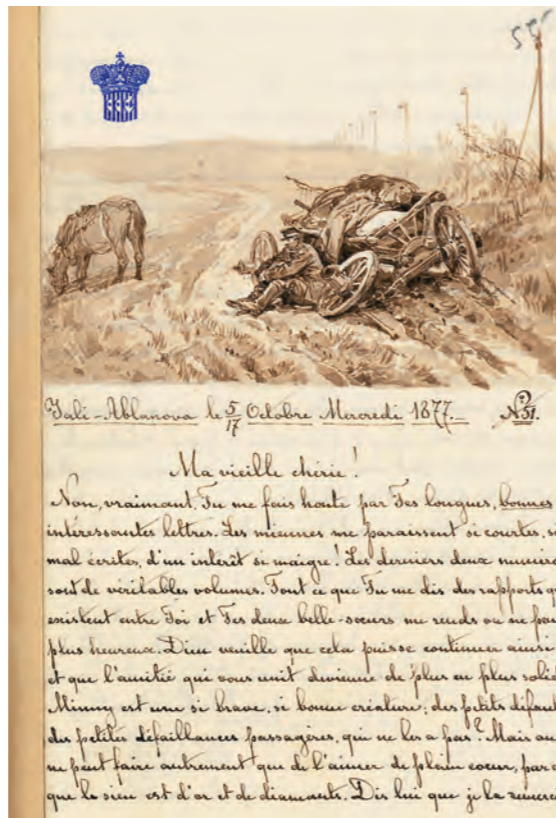 55
Jali-Ablanova le 5/17 Octobre Mercredi 1877. N° 51.
Ma vieille chérie!
Non, vraiment, Tu me fais honte par Tes longues, bonnes
intéressantes lettres. Les miennes me paraissent si courtes, si
mal écrites, d'un intérêt si maigre! Les derniers deux numéro
sont de véritables volumes. Tout ce que Tu me dis des rapports qu
existent entre Toi et Tes deux belle-soeurs me rends on ne peu
plus heureux. Dieu veuille que cela puisse continuer ainsi
et que l'amitié qui vous unit devienne de plus en plus solid
Minny est une si brave, si bonne créature; des petits défaut
des petites défaillances passagères, qui ne les a pas? Mais on
ne peut faire autrement que de l'aimer de plein coeur, parc
que le sien est d'or et de diamants. Dis lui que je la remerci